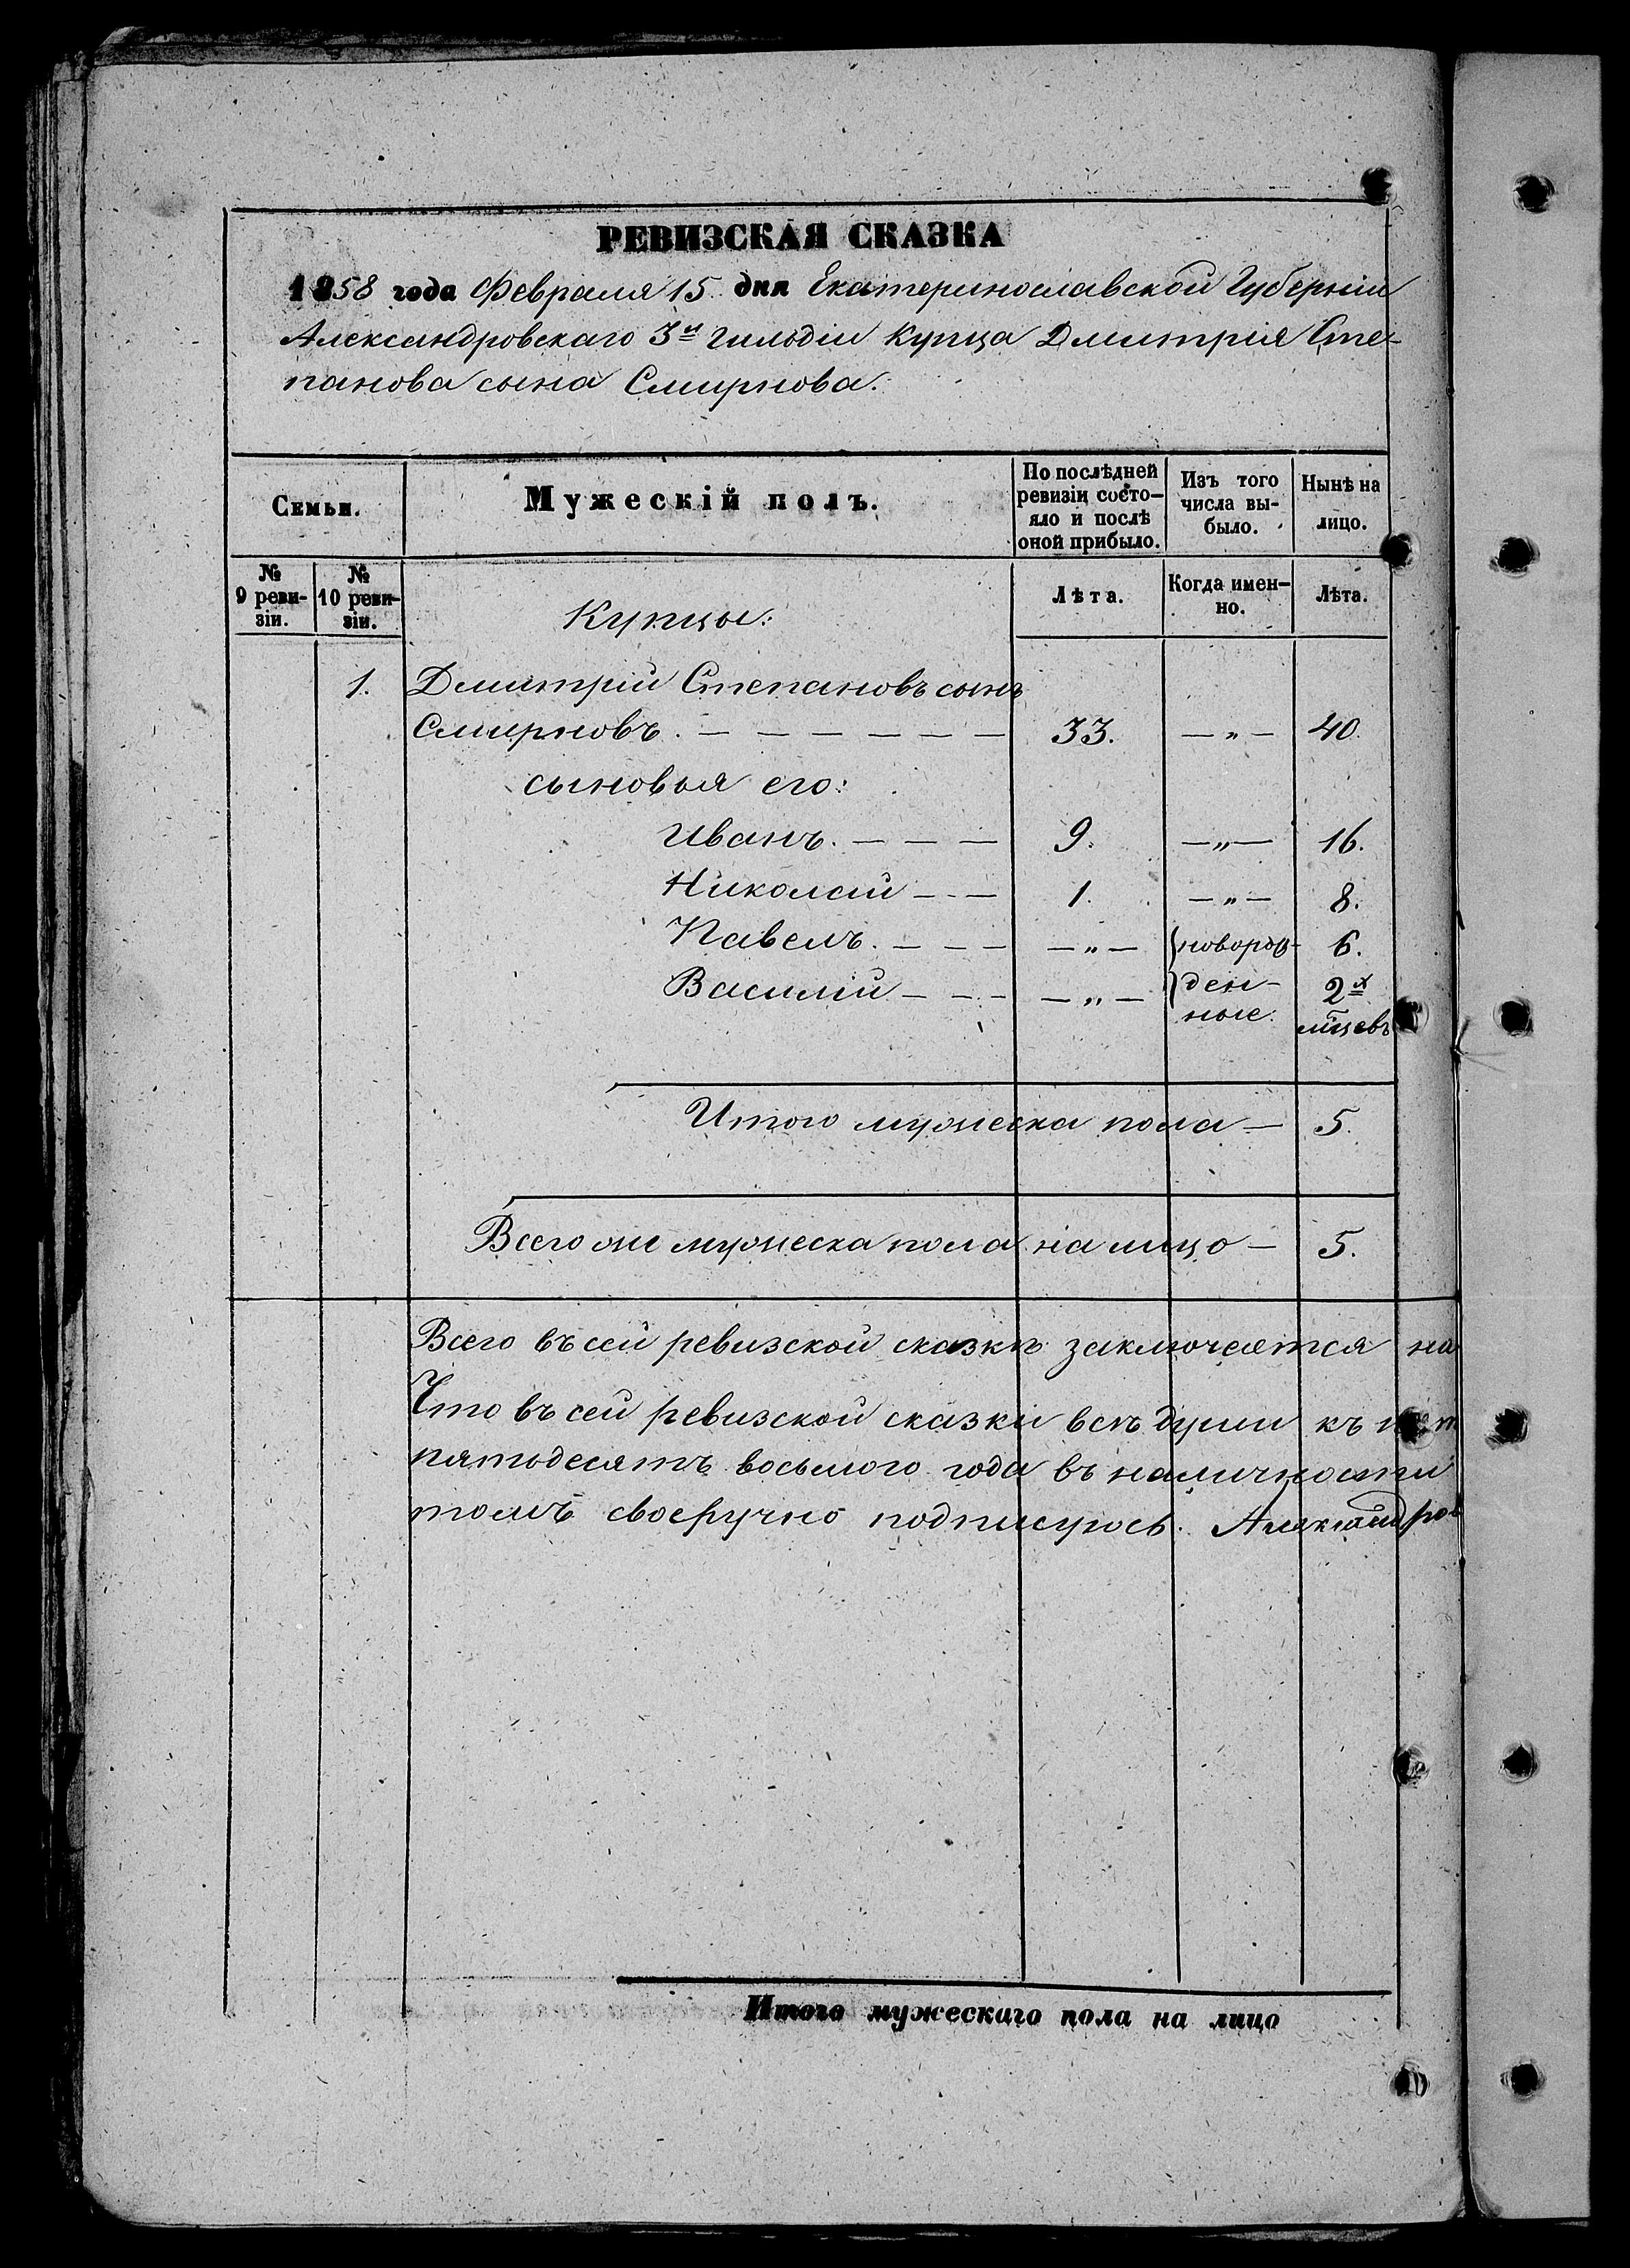 РЕВИЗСКАЯ СКАЗКА
1858 года Февраля 15. дня Екатеринославской Губерніи
Александровскаго 3й гильдіи Купца Дмитрія Сте-
панова сына Смирнова.
Семьи. Мужескій полъ. По послѣдней ревизіи состо-яло и послѣ оной прибыло. Изъ того числа вы-было. Нынѣ на лицо.
№ 9 реви-зіи. № 10 реви-зіи. Купцы: Лѣта. Когда имен-но. Лѣта.
1. Дмитрій Степановъ сынъ
Смирновъ. — — — — — — 33. — „ — 40.
сыновья его:
Иванъ. — — — 9. — „ — 16.
Николай — — 1. — „ — 8.
Павелъ. — — — — „ — новорож- 6.
Василій — — — — „ — ден- 2х
ные. мцевъ
Итого мужеска пола — 5.
Всего же мужеска пола на лицо — 5.
Всего въ сей ревизской сказкѣ заключается на
Что въ сей ревизской сказки всѣ души къ
пятодесятъ восьмого года въ наличности
томъ своеручно подписуюсь. Александров
Итого мужескаго пола на лицо